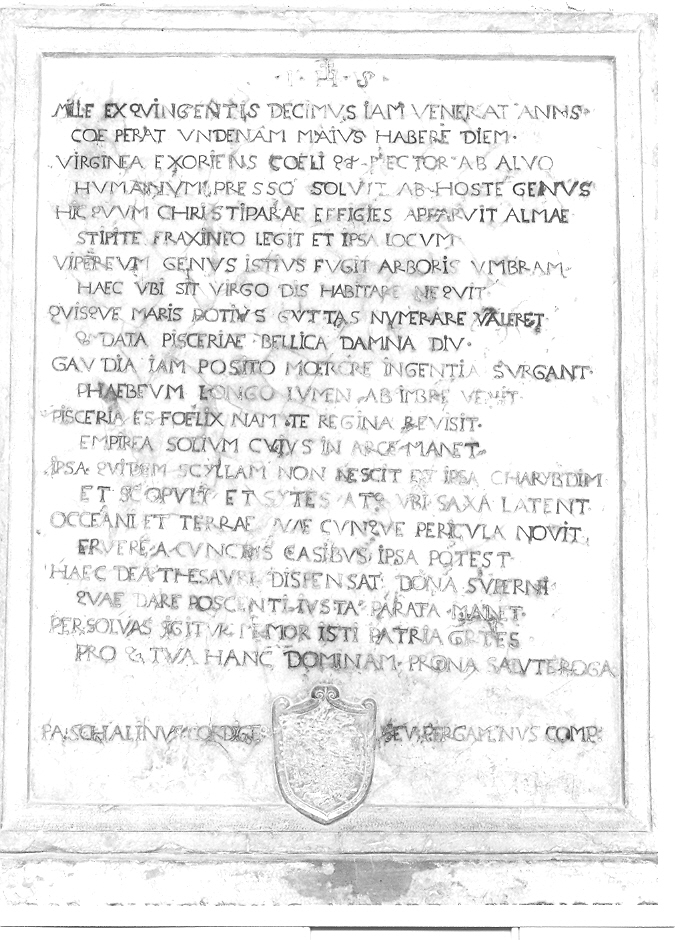 · Y · H · S ·
MILLE EXQVINGENTIS DECIMVS IAM VENERAT ANNS
COEPERAT VNDENAM MAIVS HABERE DIEM·
VIRGINEA EXORIENS COELI & PECTOR AB ALVO
HVMANVM PRESSO SOLVIT AB HOSTE GENVS
HIC QVVM CHRISTIPARAE EFFIGIES APPARVIT ALMAE
STIPITE FRAXINEO LEGIT ET IPSA LOCVM
VIPEREVM GENVS ISTIVS FVGIT ARBORIS VMBRAM·
HAEC VBI SIT VIRGO DIS HABITARE NEQVIT·
QVISQVE MARIS POTIVS GVTTAS NVMERARE VALERET·
& DATA PISCERIAE BELLICA DAMNA DIV·
GAVDIA IAM POSITO MOERORE INGENTIA SVRGANT·
PHAEBEVM LONGO LVMEN AB IMBRE VENIT·
PISCERIA ES FOELIX NAM TE REGINA REVISIT·
EMPIREA SOLIVM CVIVS IN ARCE MANET·
IPSA QVIDEM SCYLLAM NON NESCIT ET IPSA CHARYBDIM
ET SCOPVLI ET SYTES ATQ VBI SAXA LATENT
OCCEANI ET TERRAE QVAE CVNQVE PERICVLA NOVIT
ERVERE A CVNCTIS CASIBVS IPSA POTEST·
HAEC DEA THESAVRI DISPENSAT DONA SVPERNI
QVAE DARE POSCENTI IVSTA PARATA MANET·
PERSOLVAS IGITVR MEMOR ISTI PATRIA GRTES
PRO & TVA HANC DOMINAM· PRONA SALVTE ROGA
PASCHALINVS SEV PERGAMINVS COMP·